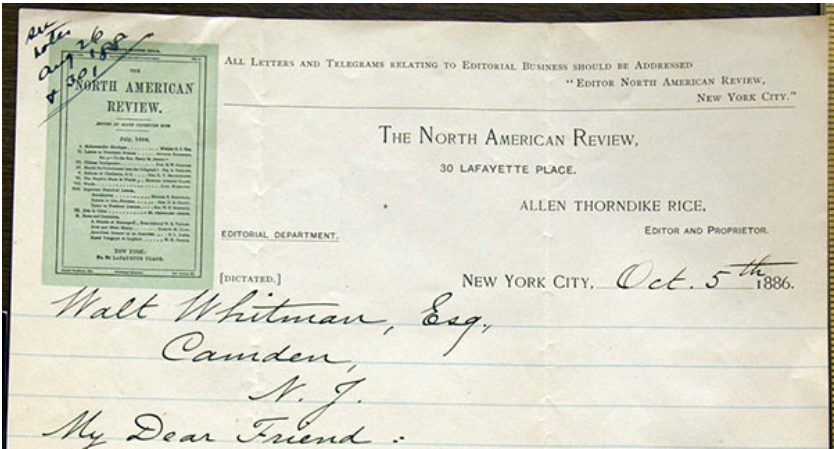 see
notes
aug 26
1888
& 301
THE
NORTH AMERICAN
REVIEW.
EDITED BY ALLEN THORNDIKE RICE
July, 1886.
NEW YORK:
No. 30 LAFAYETTE PLACE.
ALL LETTERS AND TELEGRAMS RELATING TO EDITORIAL BUSINESS SHOULD BE ADDRESSED
"EDITOR NORTH AMERICAN REVIEW,
NEW YORK CITY."
THE NORTH AMERICAN REVIEW,
30 LAFAYETTE PLACE.
ALLEN THORNDIKE RICE,
EDITORIAL DEPARTMENT.
EDITOR AND PROPRIETOR.
[DICTATED.]
NEW YORK CITY, Oct. 5th 1886.
Walt Whitman, Esq.,
Camden,
N. J.
My Dear Friend :